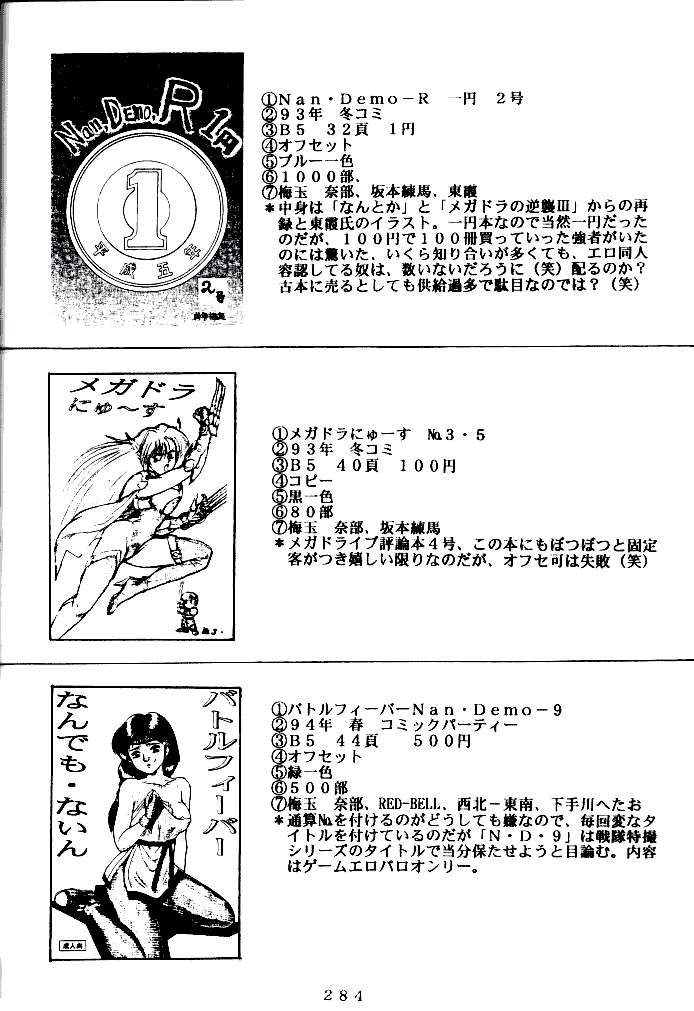 Nan,DEMO,R 1円
1
平成五年
2号
①Ｎａｎ・Ｄｅｍｏ－Ｒ　一円　２号
②９３年　冬コミ
③Ｂ５　３２頁　１円
④オフセット
⑤ブルー一色
⑥１０００部、
⑦梅玉　奈部、坂本練馬、東霞
＊中身は「なんとか」と「メガドラの逆襲Ⅲ」からの再
録と東霞氏のイラスト。一円本なので当然一円だった
のだが、１００円で１００冊買っていった強者がいた
のには驚いた、いくら知り合いが多くても、エロ同人
容認してる奴は、数いないだろうに（笑）配るのか？
古本に売るとしても供給過多で駄目なのでは？（笑）
メガドラ
にゅ～す
①メガドラにゅーす　№３・５
②９３年　冬コミ
③Ｂ５　４０頁　１００円
④コピー
⑤黒一色
⑥８０部
⑦梅玉　奈部、坂本練馬
＊メガドライブ評論本４号、この本にもぼつぼつと固定
客がつき嬉しい限りなのだが、オフセ可は失敗（笑）
バトルフィーバー
なんでも・ないん
成人向
①バトルフィーバーＮａｎ・Ｄｅｍｏ－９
②９４年　春　コミックパーティー
③Ｂ５　４４頁　　５００円
④オフセット
⑤緑一色
⑥５００部
⑦梅玉　奈部、RED-BELL、西北－東南、下手川へたお
＊通算№を付けるのがどうしても嫌なので、毎回変なタ
イトルを付けているのだが「Ｎ・Ｄ・９」は戦隊特撮
シリーズのタイトルで当分保たせようと目論む。内容
はゲームエロパロオンリー。
２８４